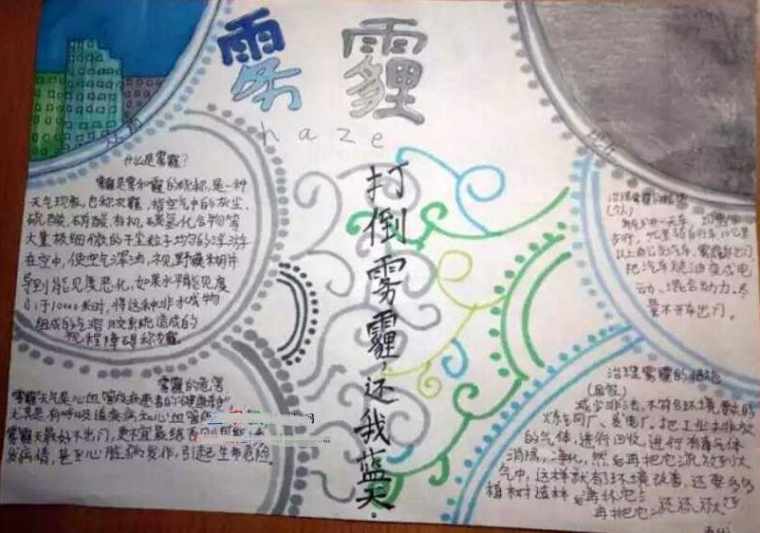 雾霾
haze
打倒雾霾,还我蓝天.
什么是雾霾?
雾霾是雾和霾的统称,是一种
天气现象,也称灰霾,指空气中的灰尘,
硫酸、硝酸、有机碳氢化合物等
大量极细微的干尘粒子均匀的浮游
在空中,使空气浑浊,视野模糊并
导致能见度恶化,如果水平能见度
小于10000米时,将这种非水成物
组成的气溶胶系统造成的
视程障碍称灰霾.
雾霾的危害
雾霾天气是心血管疾病患者的"健康杀手"
尤其是有呼吸道疾病和心血管
雾霾天最好不出门,更不宜晨练否
发病情,甚至心脏病发作,引起生命危险.
治理雾霾的措施
(个人)
以上公交汽车,雾霾
把汽车烧油变成电
动、混合动力.尽
量不开车出门.
治理雾霾的措施
(国家)
减少排污,不符合环境要求的
炼钢厂、发电厂,把工业中排放
的气体,进行回收,进行有毒气体
消除,净化,然后再把它流放到大
气中,这样就都环境改善,还要多多
植树造林
再把它